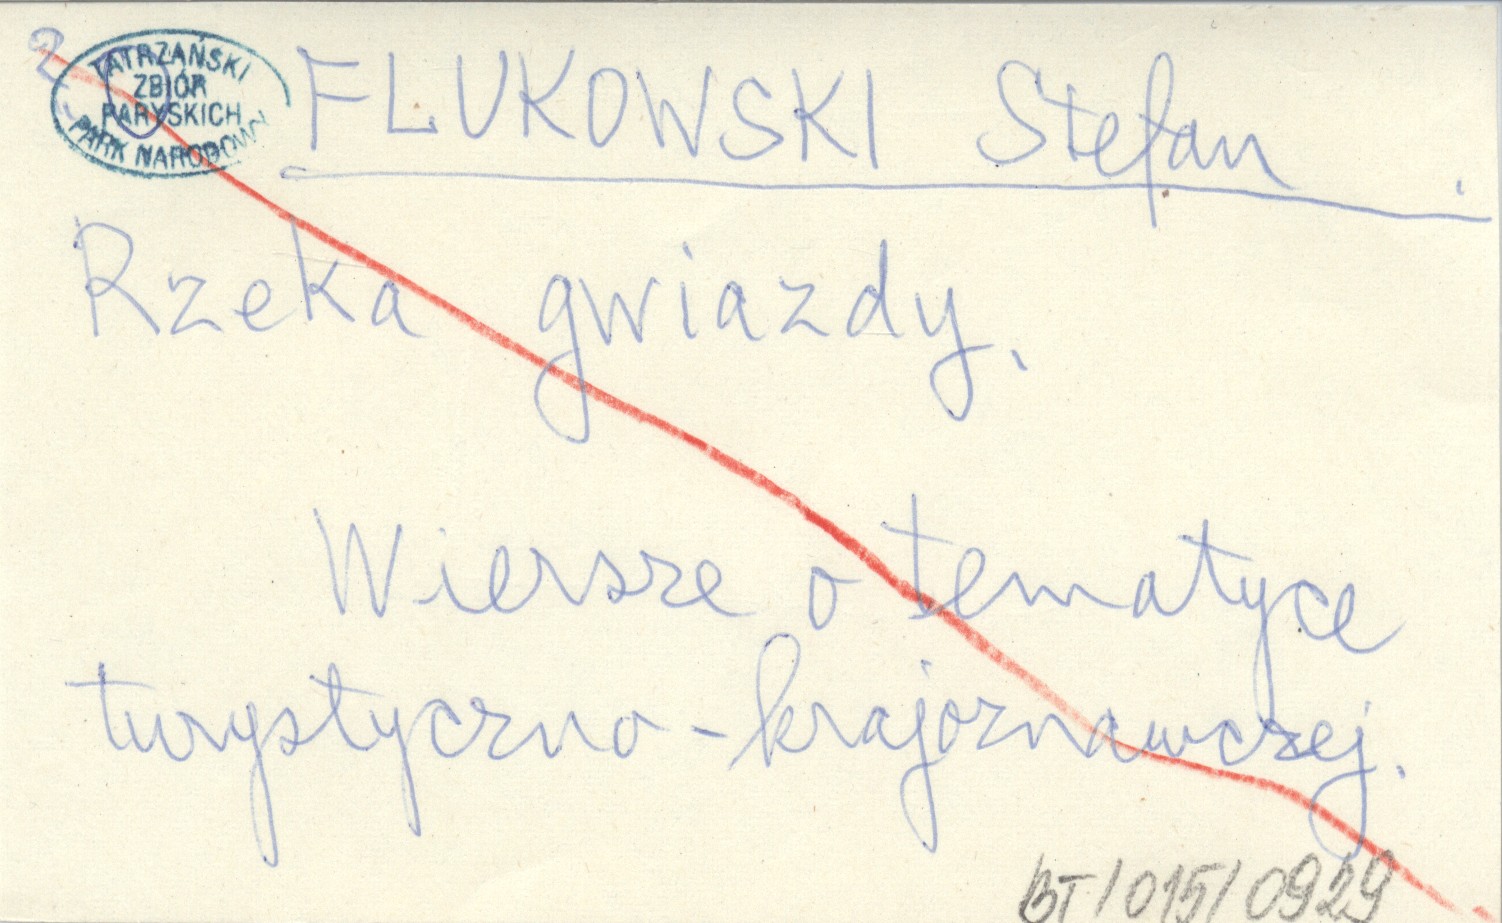 2
TATRZAŃSKI
ZBIÓR
PARYSKICH
PARK NARODOWY
FLUKOWSKI Stefan.
Rzeka gwiazdy.
Wiersze o tematyce
turystyczno-krajoznawczej.
BT/015/0929